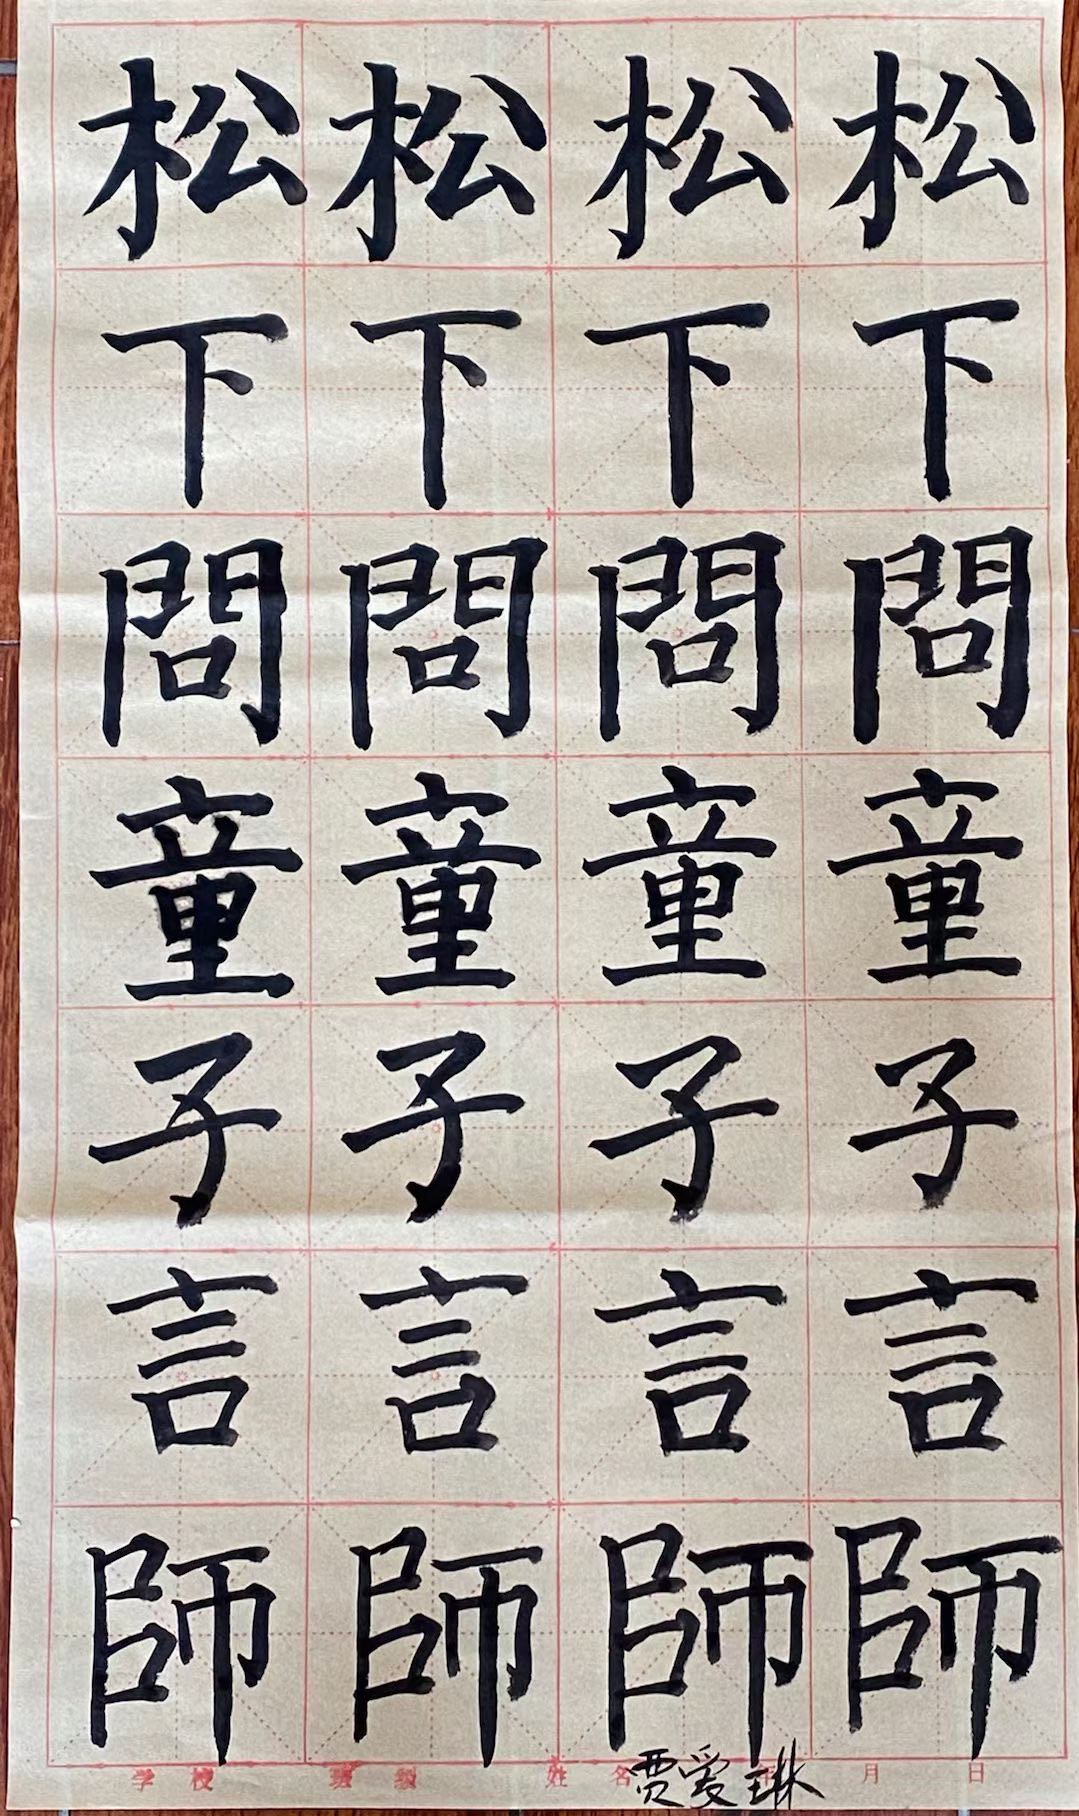 松松松松
下下下下
問問問問
童童童童
子子子子
言言言言
師師師師
学 校 班 级 姓 名 贾爱琳 年 月 日